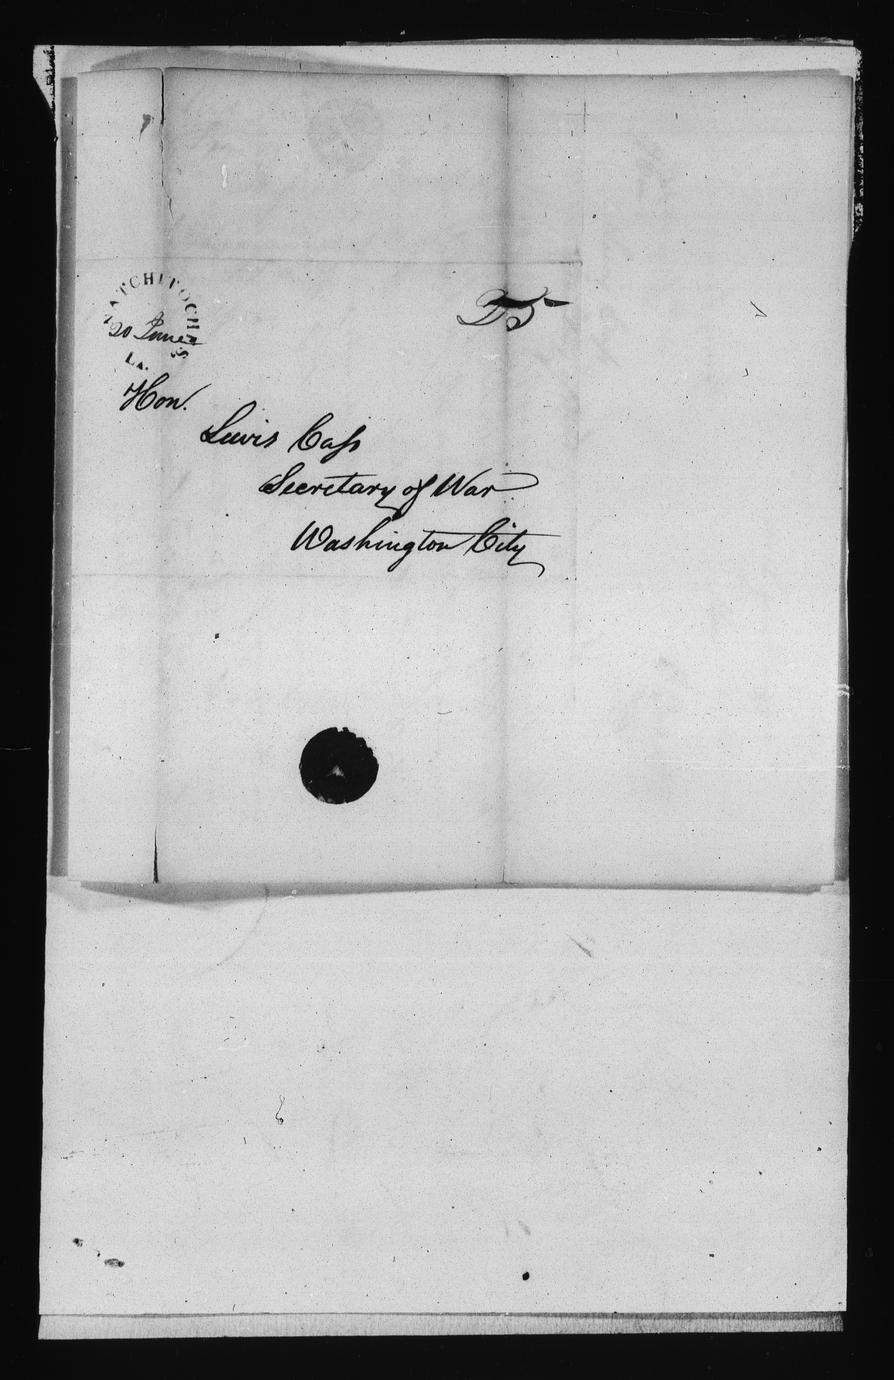 NATCHITOCHES
20 June
LA.
Hon.
Lewis Cass
Secretary of War
Washington City